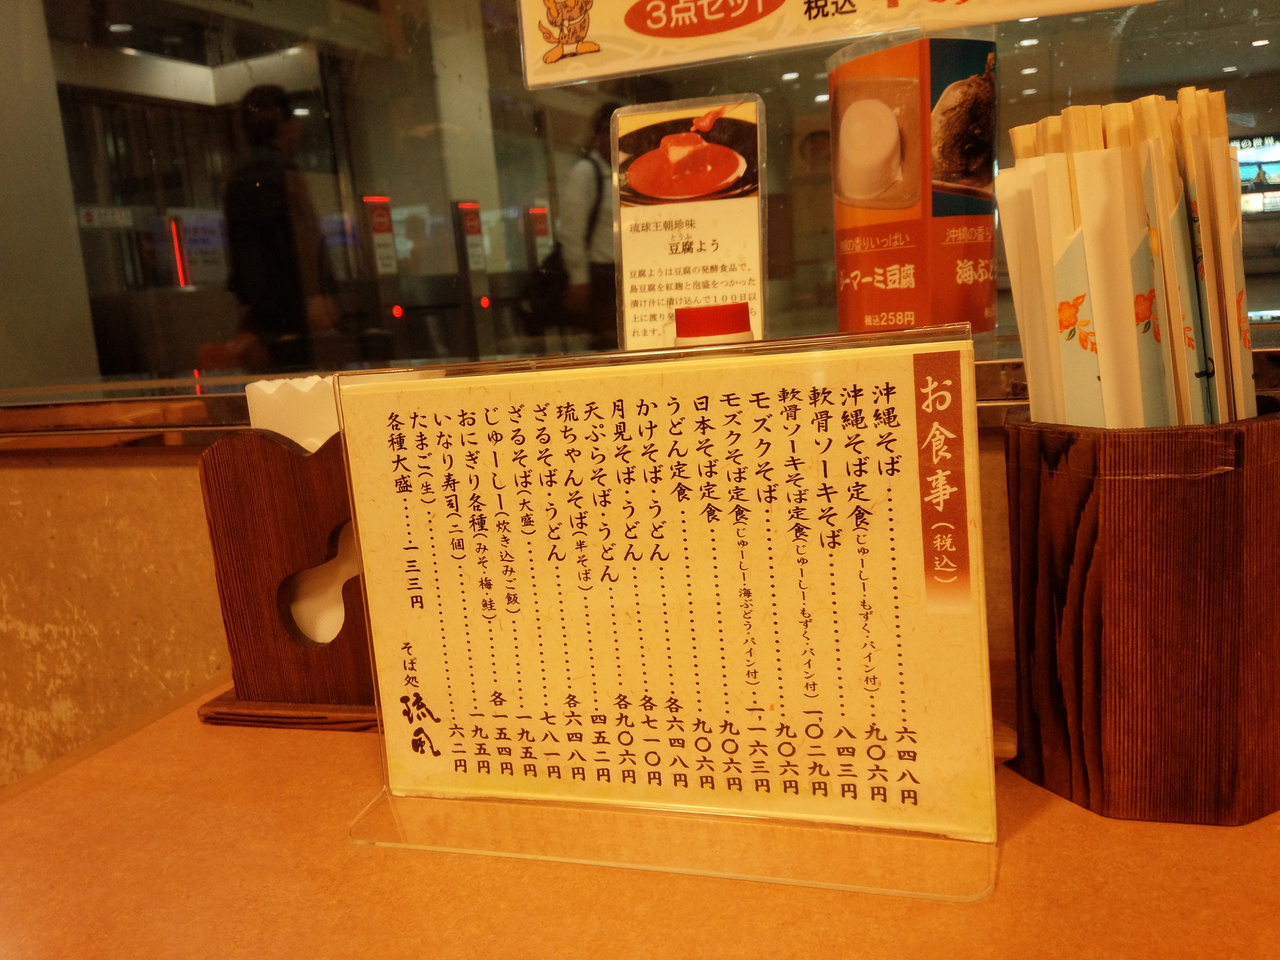 3点セット 税込
琉球王朝珍味
とうふ
豆腐よう
豆腐ようは豆腐の発酵食品で、
島豆腐を紅麹と泡盛をつかった
漬け汁に漬け込んで100日以
上に渡り発
れます。
の香りいっぱい
ーマーミ豆腐
税込258円
沖縄の香り
海ぶ
お食事(税込)
沖縄そば……六四八円
沖縄そば定食(じゅーしー・もずく・パイン付)……九〇六円
軟骨ソーキそば……八四三円
軟骨ソーキそば定食(じゅーしー・もずく・パイン付)一、〇二九円
モズクそば……九〇六円
モズクそば定食(じゅーしー・海ぶどう・パイン付)…一、一六三円
日本そば定食……九〇六円
うどん定食……九〇六円
かけそば・うどん……各六四八円
月見そば・うどん……各七一〇円
天ぷらそば・うどん……各九〇六円
琉ちゃんそば(半そば)……四五二円
ざるそば・うどん……各六四八円
ざるそば(大盛)……七八一円
じゅーしー(炊き込みご飯)……一九五円
おにぎり各種(みそ・梅・鮭)……各一五四円
いなり寿司(二個)……一九五円
たまご(生)……六二円
各種大盛……一三三円
そば処 琉風